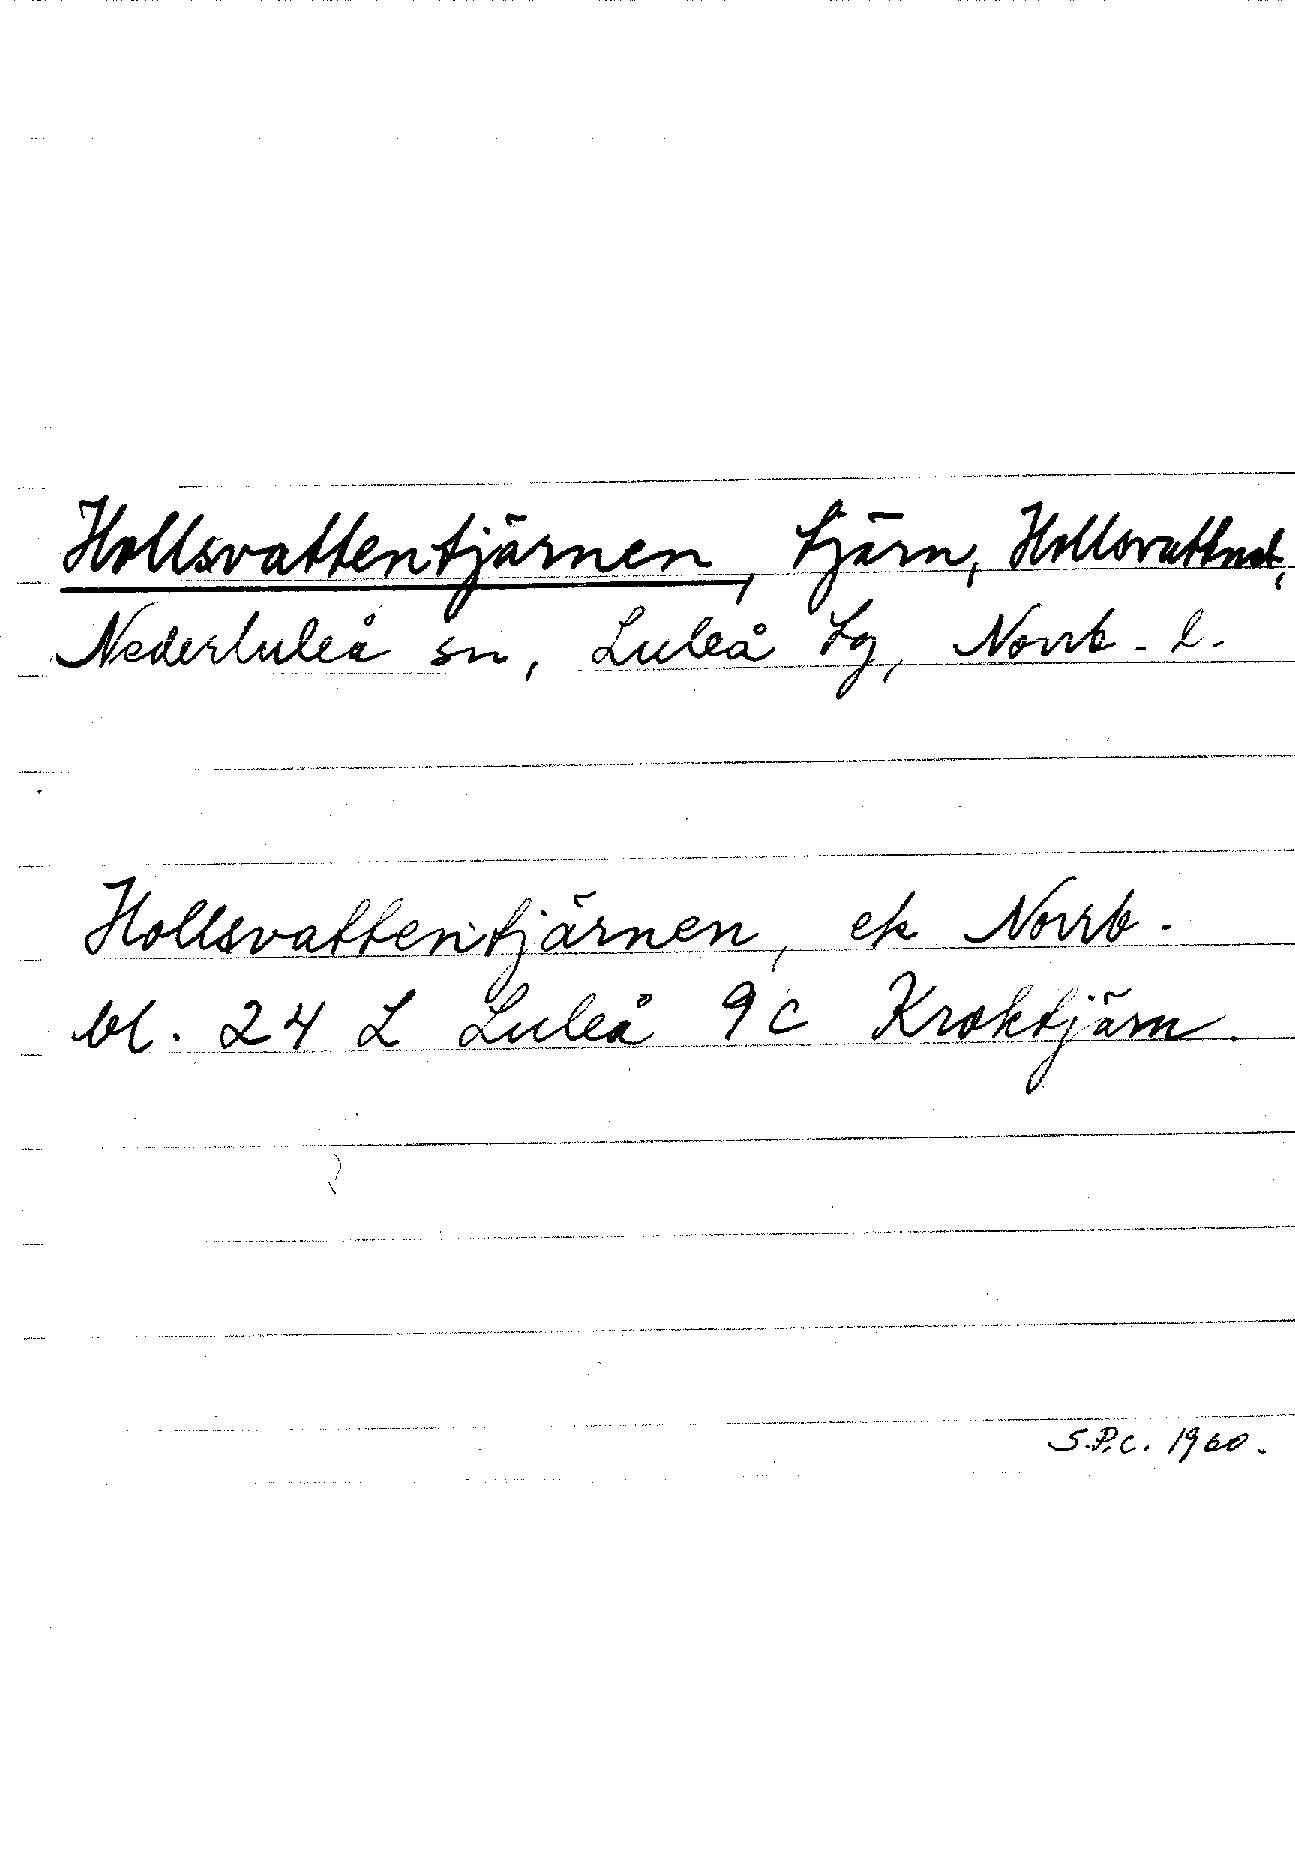 Hollsvattentjärnen, tjärn, Hollsvattnet,
Nederluleå sn, Luleå tg, Norrb. l.
Hollsvattentjärnen, ek Norrb.
bl. 24 L Luleå 9 c Kroktjärn.
S.P.C. 1960.